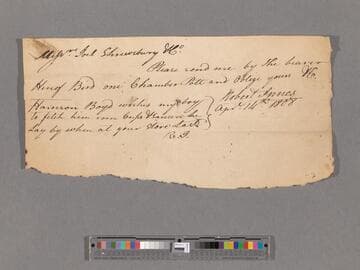 Messrs Joel Shrewsbury & Co
Please send me by the bearer
one Chamber Pott and Oblige yours &c
Robert Innes
Apl. 14th 1808
Harmon Boyd wishes my boy
to fetch him some Cups & he
lay by when at your Store last
R. I.